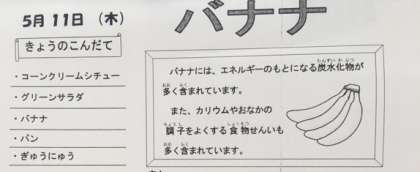 5月11日（木）
バナナ
きょうのこんだて
・コーンクリームシチュー
・グリーンサラダ
・バナナ
・パン
・ぎゅうにゅう
バナナには、エネルギーのもとになる炭水化物が
多く含まれています。
また、カリウムやおなかの
調子をよくする食物せんいも
多く含まれています。